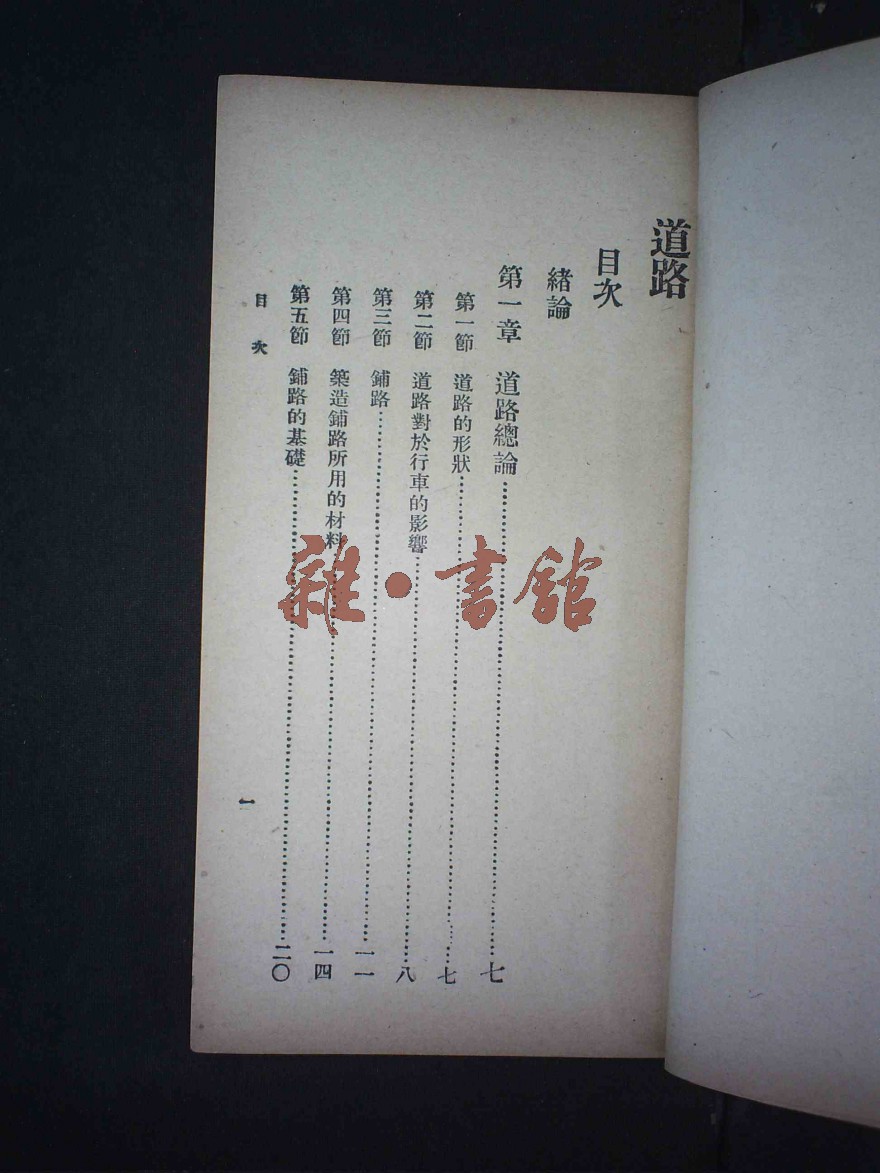 道路
目次
緒論
第一章 道路總論……………………七
第一節 道路的形狀……………………七
第二節 道路對於行車的影響……………………八
第三節 鋪路……………………一一
第四節 築造鋪路所用的材料……………………一四
第五節 鋪路的基礎……………………二〇
目次
一
雜·書館